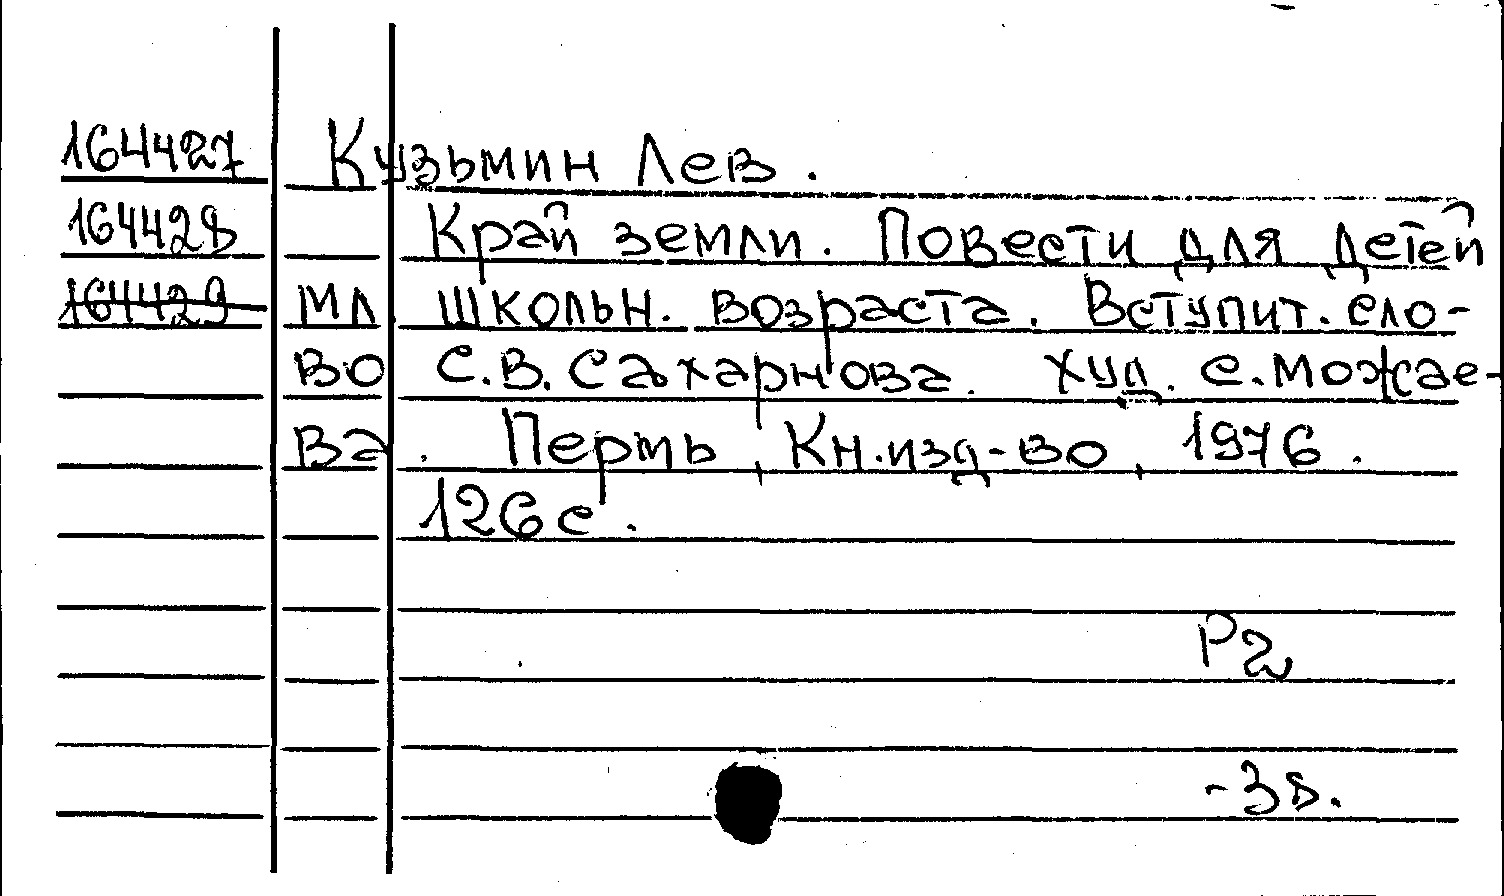 164427 Кузьмин Лев.
164428 Край земли. Повести для детей
164429 мл. школьн. возраста. Вступит. сло-
во С.В. Сахарнова. Худ. С. Можае-
ва. Пермь, Кн. изд-во, 1976.
126 с.
Р2
-38.